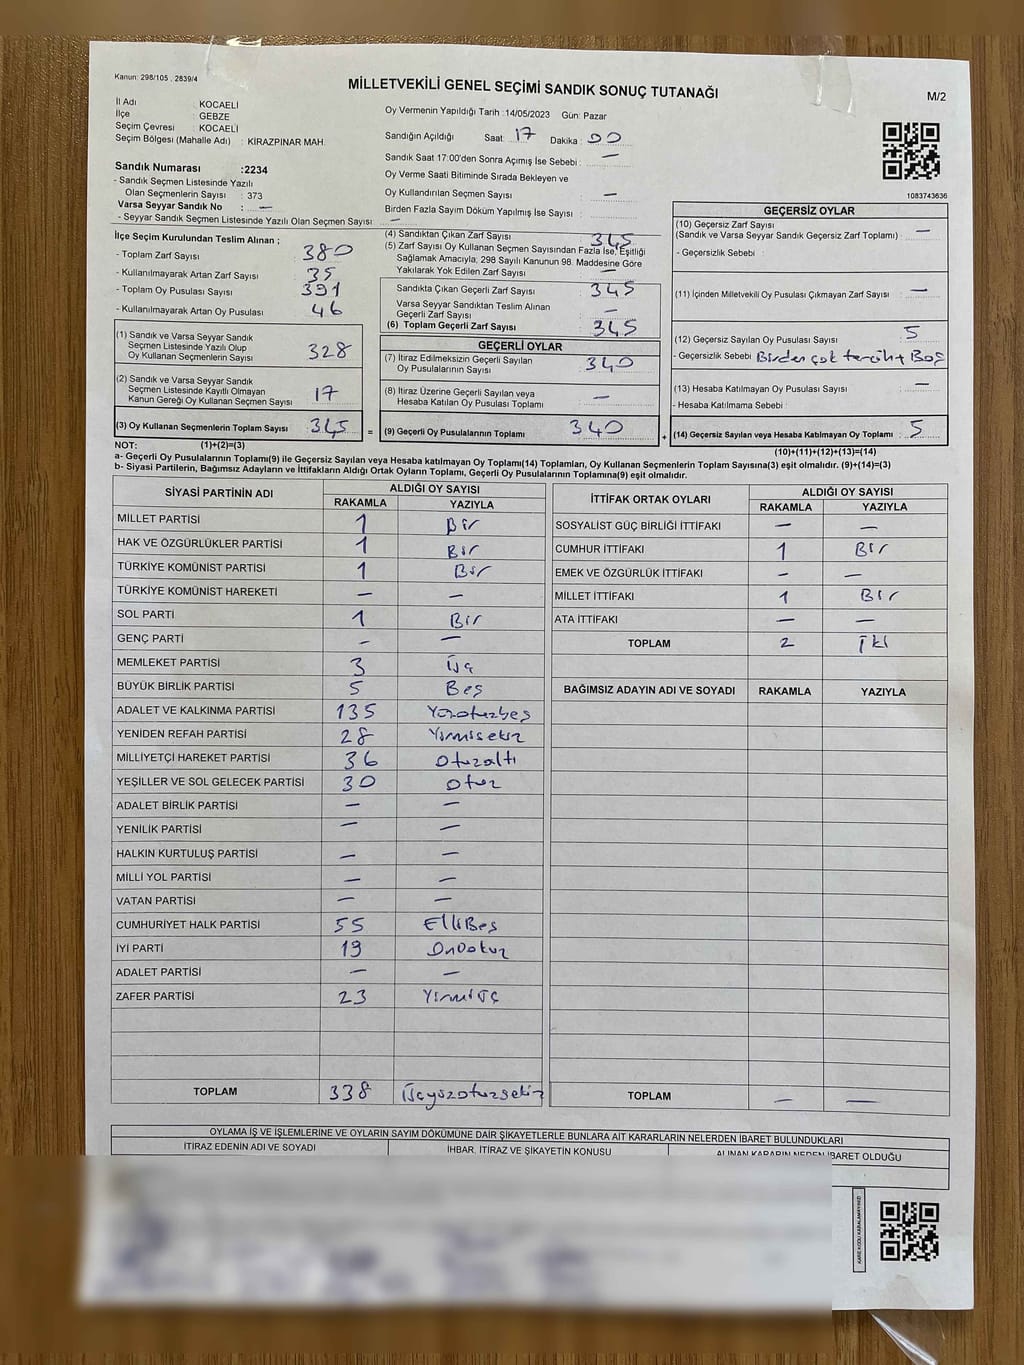 Kanun: 298/105 , 2839/4
MİLLETVEKİLİ GENEL SEÇİMİ SANDIK SONUÇ TUTANAĞI
M/2
İl Adı : KOCAELİ
İlçe : GEBZE
Seçim Çevresi : KOCAELİ
Seçim Bölgesi (Mahalle Adı) : KİRAZPINAR MAH.
Oy Vermenin Yapıldığı Tarih :14/05/2023 Gün: Pazar
Sandığın Açıldığı Saat: 17 Dakika: 00
Sandık Saat 17:00'den Sonra Açımış İse Sebebi : —
Oy Verme Saati Bitiminde Sırada Bekleyen ve
Oy Kullandırılan Seçmen Sayısı : —
Birden Fazla Sayım Döküm Yapılmış İse Sayısı :
1083743636
Sandık Numarası :2234
- Sandık Seçmen Listesinde Yazılı
Olan Seçmenlerin Sayısı : 373
Varsa Seyyar Sandık No : —
- Seyyar Sandık Seçmen Listesinde Yazılı Olan Seçmen Sayısı: —
İlçe Seçim Kurulundan Teslim Alınan ;
- Toplam Zarf Sayısı : 380
- Kullanılmayarak Artan Zarf Sayısı : 35
- Toplam Oy Pusulası Sayısı : 391
- Kullanılmayarak Artan Oy Pusulası : 46
(1) Sandık ve Varsa Seyyar Sandık
Seçmen Listesinde Yazılı Olup
Oy Kullanan Seçmenlerin Sayısı : 328
(2) Sandık ve Varsa Seyyar Sandık
Seçmen Listesinde Kayıtlı Olmayan
Kanun Gereği Oy Kullanan Seçmen Sayısı : 17
(3) Oy Kullanan Seçmenlerin Toplam Sayısı : 345 =
(4) Sandıktan Çıkan Zarf Sayısı : 345
(5) Zarf Sayısı Oy Kullanan Seçmen Sayısından Fazla İse, Eşitliği
Sağlamak Amacıyla; 298 Sayılı Kanunun 98. Maddesine Göre
Yakılarak Yok Edilen Zarf Sayısı : —
Sandıkta Çıkan Geçerli Zarf Sayısı : 345
Varsa Seyyar Sandıktan Teslim Alınan
Geçerli Zarf Sayısı : —
(6) Toplam Geçerli Zarf Sayısı : 345
GEÇERLİ OYLAR
(7) İtiraz Edilmeksizin Geçerli Sayılan
Oy Pusulalarının Sayısı : 340
(8) İtiraz Üzerine Geçerli Sayılan veya
Hesaba Katılan Oy Pusulası Toplamı : —
(9) Geçerli Oy Pusulalarının Toplamı : 340 +
GEÇERSİZ OYLAR
(10) Geçersiz Zarf Sayısı
(Sandık ve Varsa Seyyar Sandık Geçersiz Zarf Toplamı) : —
- Geçersizlik Sebebi :
(11) İçinden Milletvekili Oy Pusulası Çıkmayan Zarf Sayısı : —
(12) Geçersiz Sayılan Oy Pusulası Sayısı : 5
- Geçersizlik Sebebi : Birden çok tercih + Boş
(13) Hesaba Katılmayan Oy Pusulası Sayısı : —
- Hesaba Katılmama Sebebi :
(14) Geçersiz Sayılan veya Hesaba Katılmayan Oy Toplamı : 5
NOT: (1)+(2)=(3)
(10)+(11)+(12)+(13)=(14)
a- Geçerli Oy Pusulalarının Toplamı(9) ile Geçersiz Sayılan veya Hesaba katılmayan Oy Toplamı(14) Toplamları, Oy Kullanan Seçmenlerin Toplam Sayısına(3) eşit olmalıdır. (9)+(14)=(3)
b- Siyasi Partilerin, Bağımsız Adayların ve İttifakların Aldığı Ortak Oyların Toplamı, Geçerli Oy Pusulalarının Toplamına(9) eşit olmalıdır.
SİYASİ PARTİNİN ADI ALDIĞI OY SAYISI
RAKAMLA YAZIYLA
MİLLET PARTİSİ 1 Bir
HAK VE ÖZGÜRLÜKLER PARTİSİ 1 Bir
TÜRKİYE KOMÜNİST PARTİSİ 1 Bir
TÜRKİYE KOMÜNİST HAREKETİ — —
SOL PARTİ 1 Bir
GENÇ PARTİ — —
MEMLEKET PARTİSİ 3 Üç
BÜYÜK BİRLİK PARTİSİ 5 Beş
ADALET VE KALKINMA PARTİSİ 135 Yüzotuzbeş
YENİDEN REFAH PARTİSİ 28 Yirmisekiz
MİLLİYETÇİ HAREKET PARTİSİ 36 Otuzaltı
YEŞİLLER VE SOL GELECEK PARTİSİ 30 Otuz
ADALET BİRLİK PARTİSİ — —
YENİLİK PARTİSİ — —
HALKIN KURTULUŞ PARTİSİ — —
MİLLİ YOL PARTİSİ — —
VATAN PARTİSİ — —
CUMHURİYET HALK PARTİSİ 55 ElliBeş
İYİ PARTİ 19 OnDokuz
ADALET PARTİSİ — —
ZAFER PARTİSİ 23 Yirmiüç
TOPLAM 338 Üçyüzotuzsekiz
İTTİFAK ORTAK OYLARI ALDIĞI OY SAYISI
RAKAMLA YAZIYLA
SOSYALİST GÜÇ BİRLİĞİ İTTİFAKI — —
CUMHUR İTTİFAKI 1 Bir
EMEK VE ÖZGÜRLÜK İTTİFAKI — —
MİLLET İTTİFAKI 1 Bir
ATA İTTİFAKI — —
TOPLAM 2 İki
BAĞIMSIZ ADAYIN ADI VE SOYADI RAKAMLA YAZIYLA
TOPLAM — —
OYLAMA İŞ VE İŞLEMLERİNE VE OYLARIN SAYIM DÖKÜMÜNE DAİR ŞİKAYETLERLE BUNLARA AİT KARARLARIN NELERDEN İBARET BULUNDUKLARI
İTİRAZ EDENİN ADI VE SOYADI İHBAR, İTİRAZ VE ŞİKAYETİN KONUSU ALINAN KARARIN NEDEN İBARET OLDUĞU
KARE KODU KARALAMAYINIZ!